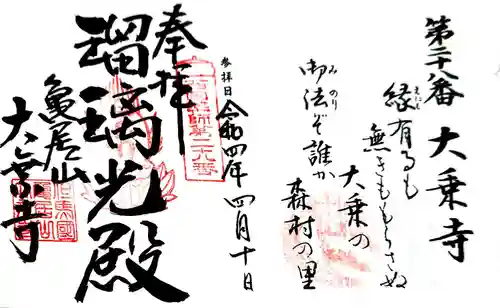 第二十八番 大乗寺
縁有るも
えにし
無きももらさぬ
大乗の
御法ぞ誰か
みのり
森村の里
参拝日 令和四年四月十日
奉拝
瑠璃光殿
亀居山
大乗寺